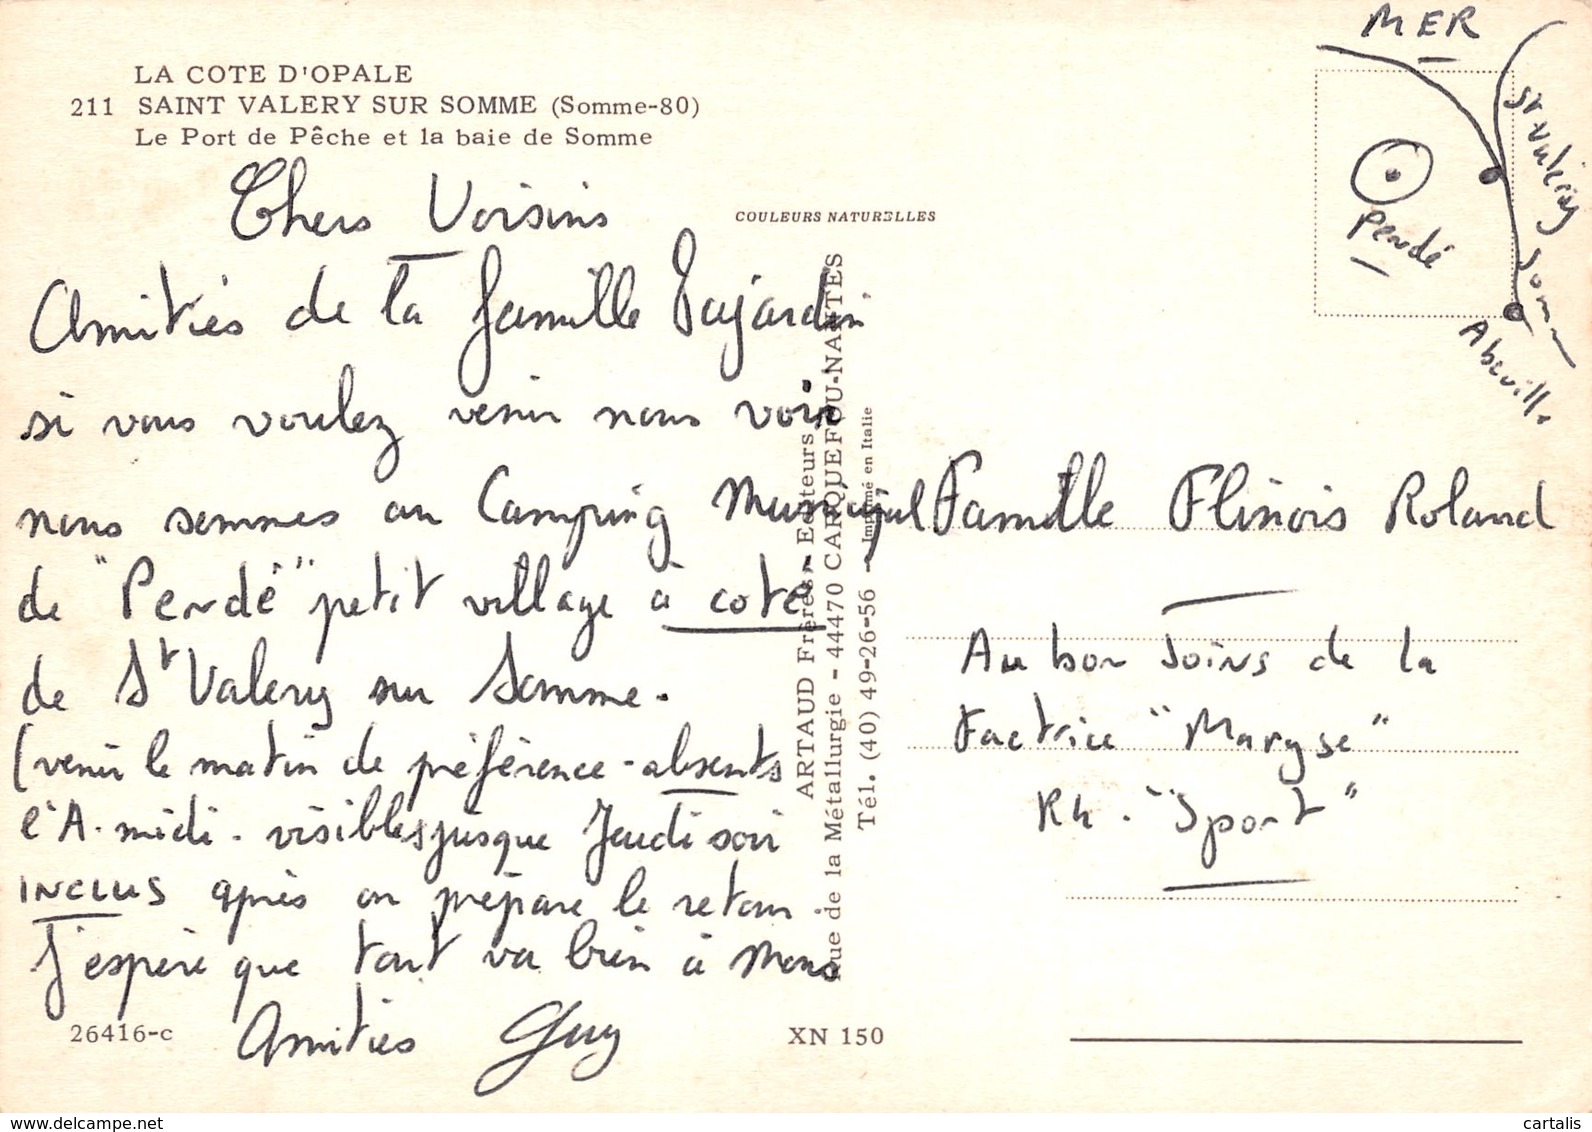 LA COTE D'OPALE
211 SAINT VALERY SUR SOMME (Somme-80)
Le Port de Pêche et la baie de Somme
COULEURS NATURELLES
Chers Voisins
Amitiés de la famille Dujardin,
si vous voulez venir nous voir
nous sommes au Camping Municipal
de "Pendé" petit village à coté
de St Valery sur Somme.
(venir le matin de préférence - absents
l'A. midi - visibles jusque Jeudi soir
INCLUS après on prépare le retour.
J'espère que tout va bien à Mons
Amitiés Guy
26416-c
XN 150
ARTAUD Frères - Editeurs
Rue de la Métallurgie - 44470 CARQUEFOU-NANTES
Tél. (40) 49-26-56 - Imprimé en Italie
MER
St Valéry
Somme
Pendé
Abeville
Famille Flinois Roland
Au bon Soins de la
Factrice "Maryse"
Rh. "Sport"
www.delcampe.net
cartalis